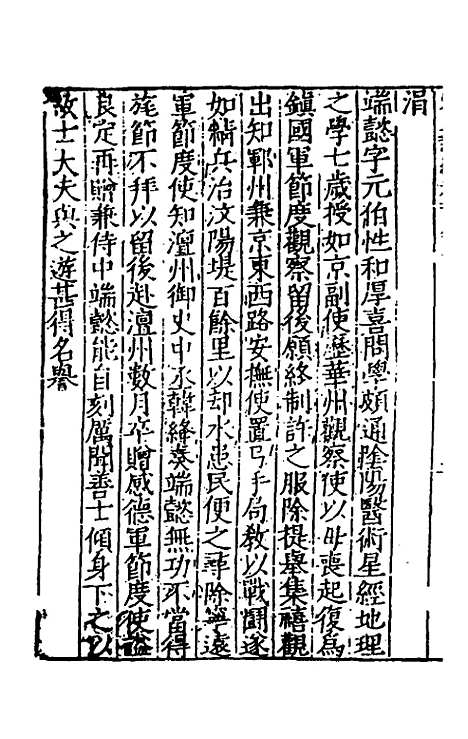 涓
端懿字元伯性和厚喜問學頗通陰陽醫術星經地理
之學七歲授如京副使歷華州觀察使以母喪起復爲
鎮國軍節度觀察留後願終制許之服除提舉集禧觀
出知鄆州兼京東西路安撫使置弓手局教以戰鬪遂
如績兵治汶陽堤百餘里以却水患民便之尋除寧遠
軍節度使知澶州御史中丞韓絳奏端懿無功不當得
旄節不拜以留後赴澶州數月卒贈感德軍節度使謚
良定再贈兼侍中端懿能自刻厲聞善士傾身下之以
故士大夫與之遊甚得名譽